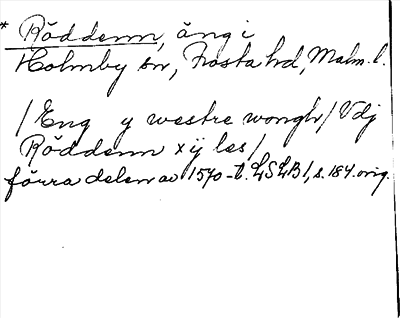 * Röddenn, äng i
Holmby sn, Frosta hd, Malm. l.
/Eng y westre wongh/Vdj
Röddenn x ij les/
förra delen av 1570-t. LSLB 1, s. 184. orig.